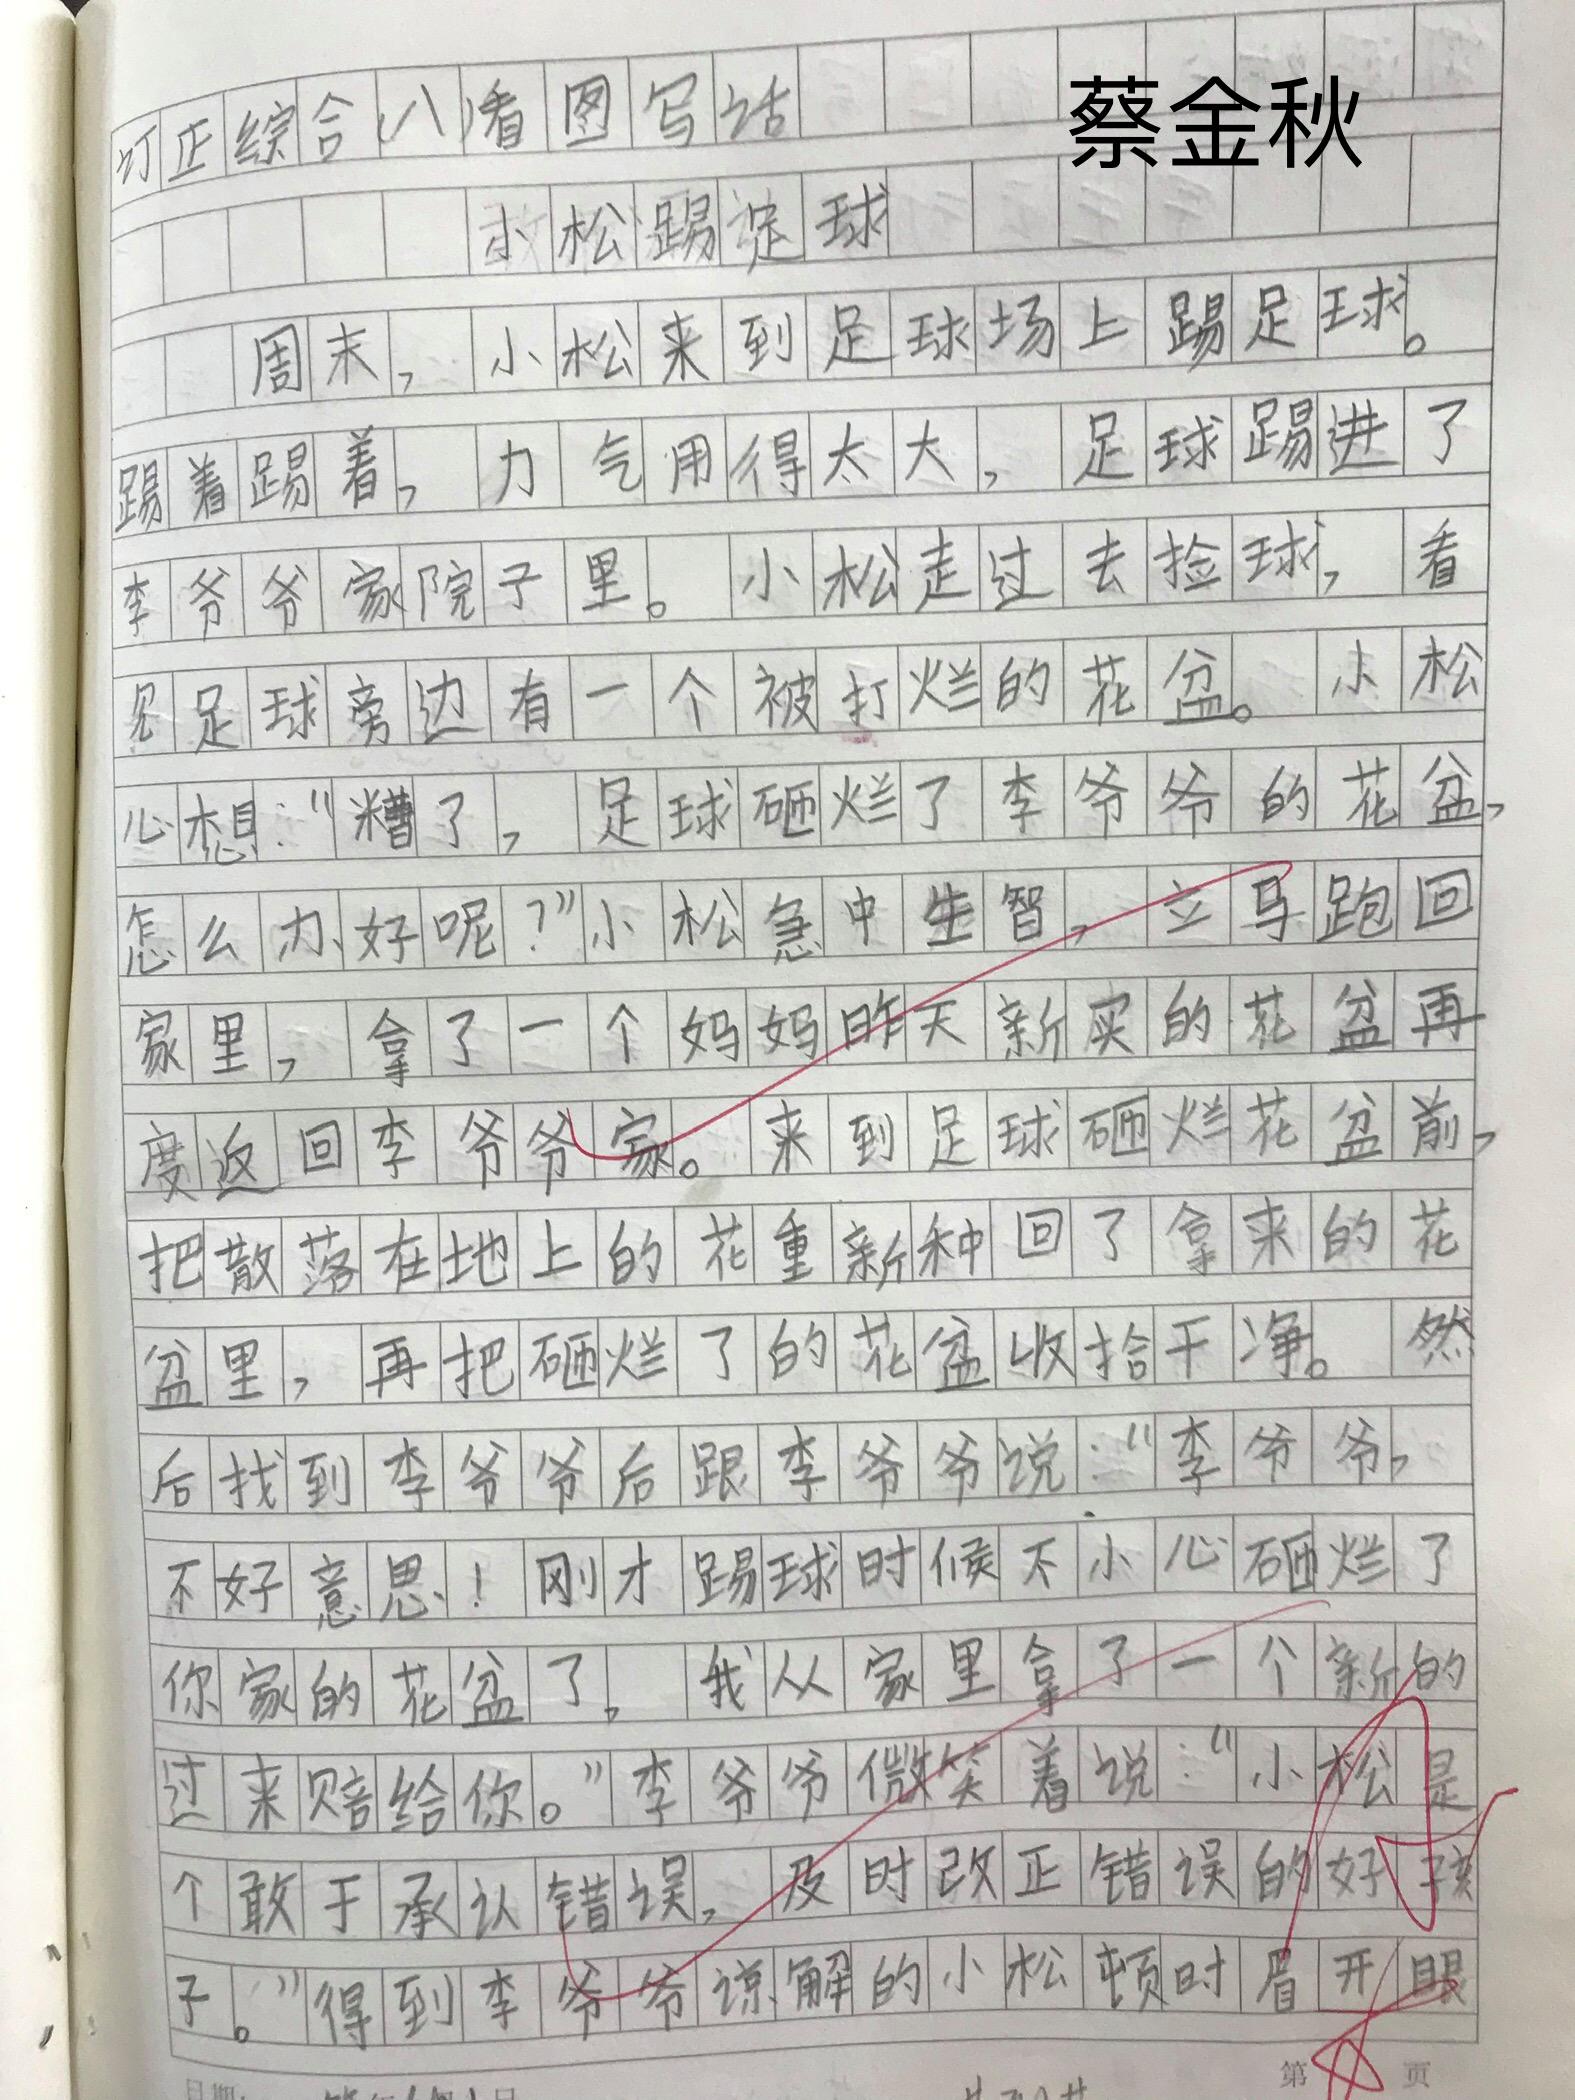 订正综合(八)看图写话
蔡金秋
小松踢足球
周末，小松来到足球场上踢足球。
踢着踢着，力气用得太大，足球踢进了
李爷爷家院子里。小松走过去捡球，看
见足球旁边有一个被打烂的花盆。小松
心想：“糟了，足球砸烂了李爷爷的花盆，
怎么办好呢？”小松急中生智，立马跑回
家里，拿了一个妈妈昨天新买的花盆再
度返回李爷爷家。来到足球砸烂花盆前，
把散落在地上的花重新种回了拿来的花
盆里，再把砸烂了的花盆收拾干净。然
后找到李爷爷后跟李爷爷说：“李爷爷，
不好意思！刚才踢球时候不小心砸烂了
你家的花盆了，我从家里拿了一个新的
过来赔给你。”李爷爷微笑着说：“小松是
个敢于承认错误，及时改正错误的好孩
子。”得到李爷爷谅解的小松顿时眉开眼
第 页